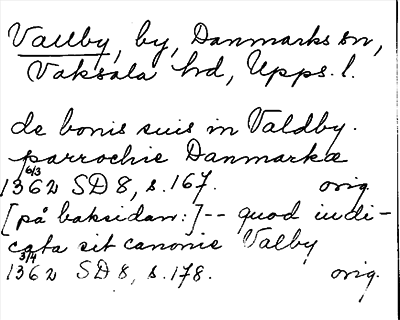 Vallby, by, Danmarks sn,
Vaksala hd, Upps. l.
de bonis suis in Valdby.
parrochie Danmarka
6/3
1362 SD 8, s. 167. orig.
[på baksidan:] -- quod indi-
cata sit canonie Valby
3/4
1362 SD 8, s. 178. orig.